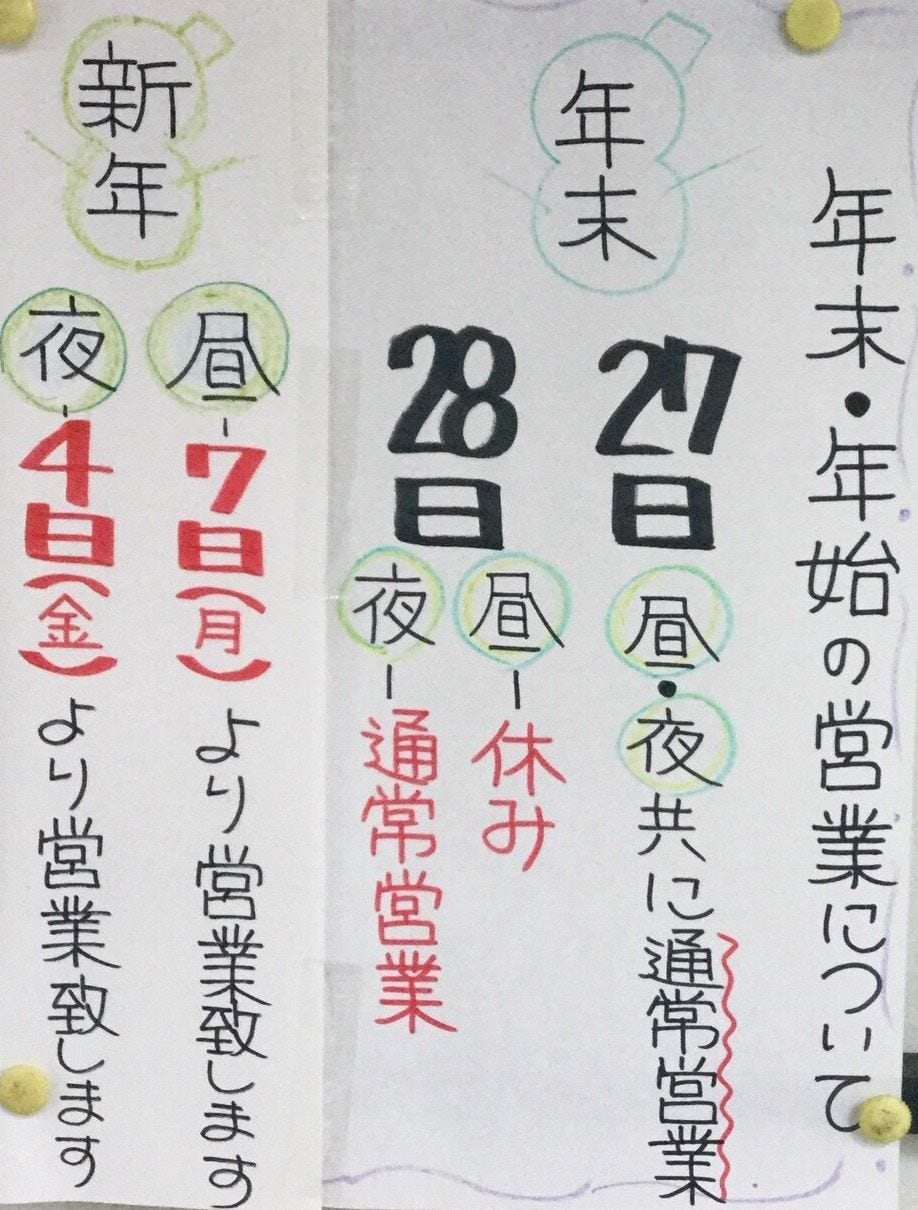 年末・年始の営業について
年末
27日 昼・夜共に通常営業
28日
昼ー休み
夜ー通常営業
新年
昼ー7日(月)より営業致します
夜ー4日(金)より営業致します